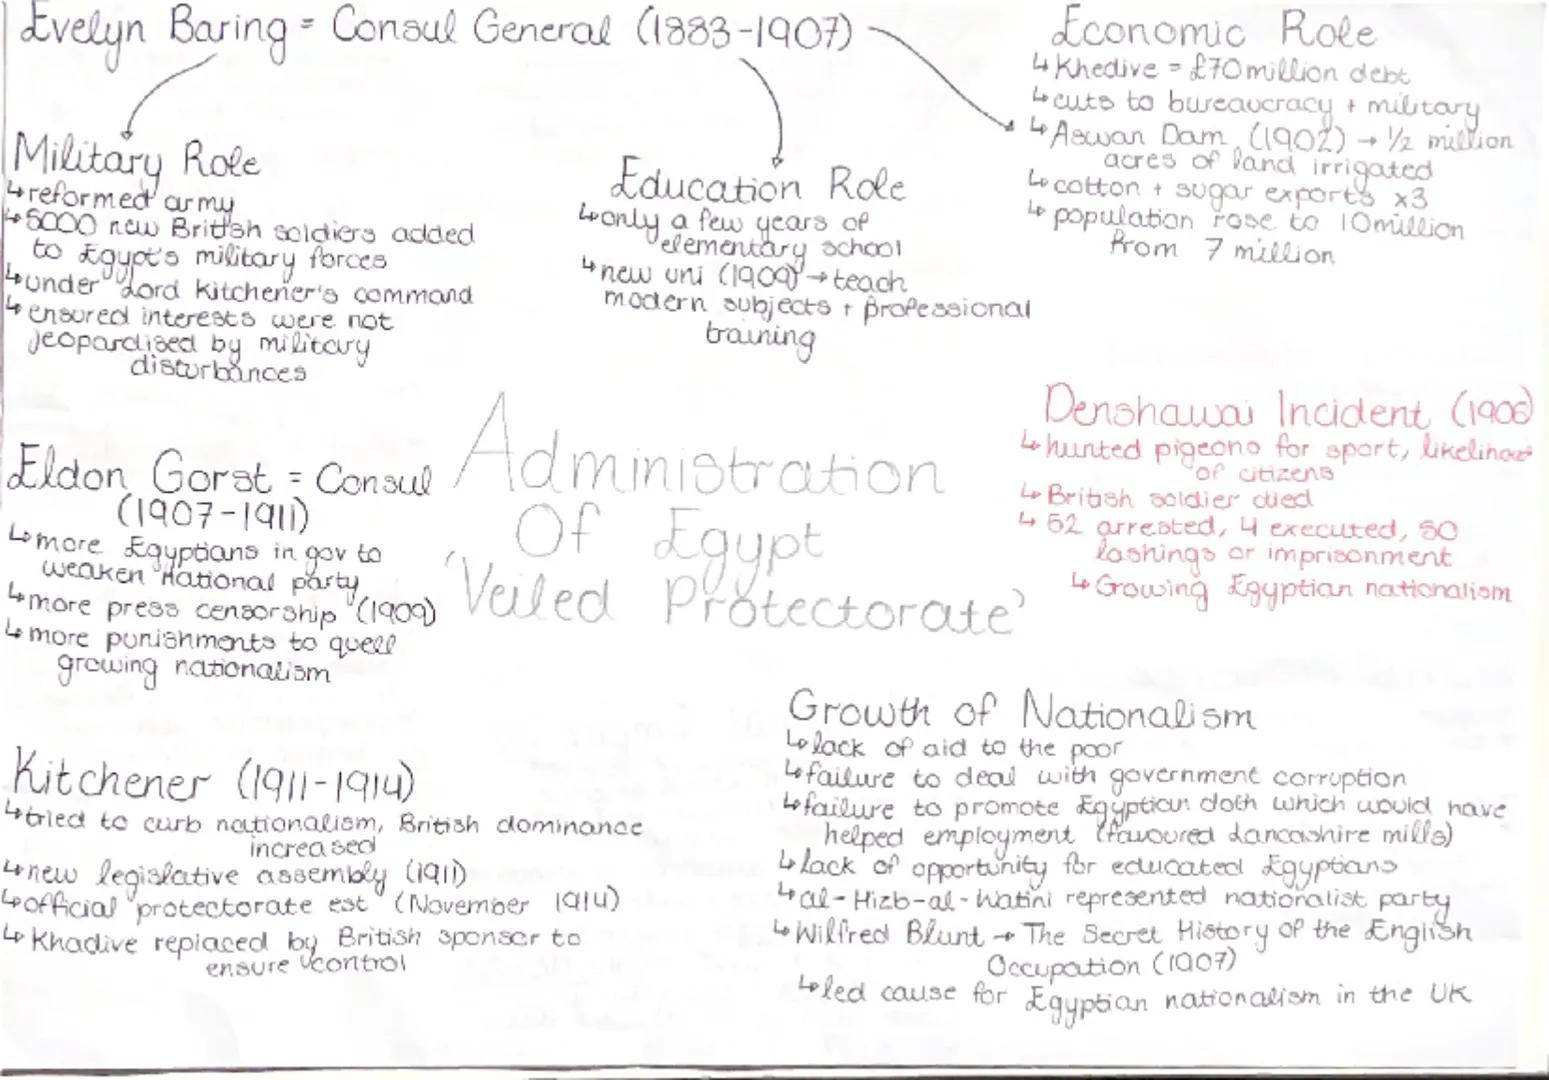 Evelyn Baring = Consul General (1883-1907)
Military Role
↳ reformed army
↳ 5000 new British soldiers added
to Egypt's military forces
↳ under Lord Kitchener's command
↳ ensured interests were not
jeopardised by military
disturbances
Education Role
↳ only a few years of
elementary school
↳ new uni (1909) → teach
modern subjects + professional
training
Economic Role
↳ Khedive = £70 million debt
↳ cuts to bureaucracy + military
↳ Aswan Dam (1902) → ½ million
acres of land irrigated
↳ cotton + sugar exports x3
↳ population rose to 10 million
from 7 million
Administration
Of Egypt
'Veiled Protectorate'
Denshawai Incident (1906)
↳ hunted pigeons for sport, likelihood
of citizens
↳ British soldier died
↳ 52 arrested, 4 executed, 50
lashings or imprisonment
↳ Growing Egyptian nationalism
Eldon Gorst = Consul
(1907-1911)
↳ more Egyptians in gov to
weaken national party
↳ more press censorship (1909)
↳ more punishments to quell
growing nationalism
Kitchener (1911-1914)
↳ tried to curb nationalism, British dominance
increased
↳ new legislative assembly (1911)
↳ official protectorate est (November 1914)
↳ Khadive replaced by British sponser to
ensure control
Growth of Nationalism
↳ lack of aid to the poor
↳ failure to deal with government corruption
↳ failure to promote Egyptian cloth which would have
helped employment (favoured Lancashire mills)
↳ lack of opportunity for educated Egyptians
↳ al-Hizb-al-Watini represented nationalist party
↳ Wilfred Blunt → The Secret History of the English
Occupation (1907)
↳ led cause for Egyptian nationalism in the UK